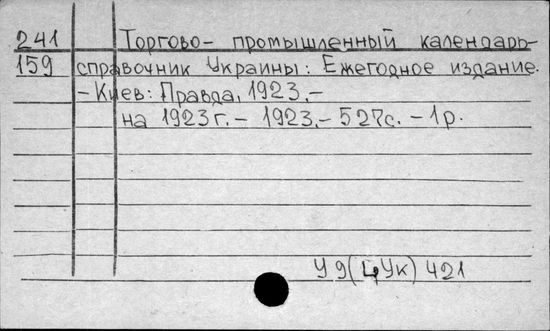 241 Торгово- промышленный календарь-
159 справочник Украины: Ежегодное издание.
-Киев: Правда, 1923.-
на 1923г.- 1923.- 527с. -1р.
У9(4Ук)421